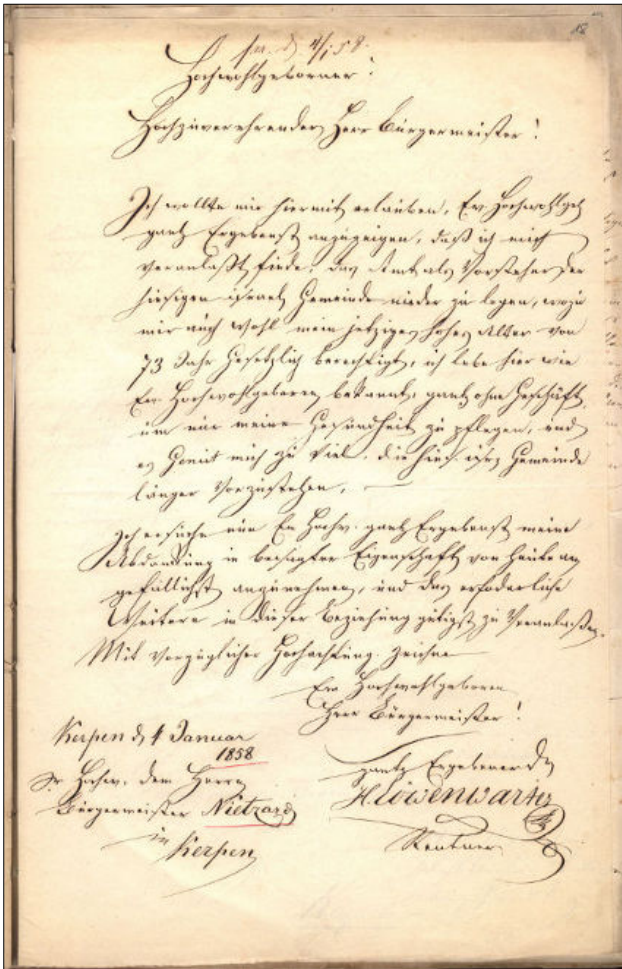 18
4/1 58.
Hochwohlgeborner!
Hochzuverehrender Herr Bürgermeister!
Ich wollte mir hiermit erlauben, Ew. Hochwohlgeb
gantz Ergebenst anzuzeigen, daß ich mich
veranlaßt finde, das Amt als Vorsteher der
hiesigen israel. Gemeinde nieder zu legen, wozu
mir auch wohl mein jetziges hohes Alter von
73 Jahr Gesetzlich berechtigt, ich lebe hier wie
Ew. Hochwohlgeboren bekannt, gantz ohne Geschäft,
um nur meine Gesundheit zu pflegen, und
es mich zu viel, die hies. isr. Gemeinde
länger vorzustehen. —
Ich ersuche nun Ew Hochw. gantz Ergebenst meine
Abdankung in besagter Eigenschaft von heute an
gefälligst anzunehmen, und das erfoderliche
Weitere in dieser Beziehung gütigst zu Veranlaßen.
Mit vorzüglicher Hochachtung zeichne
Ew Hochwohlgeboren
Herr Bürgermeister!
Kerpen d 4 Januar
1858
gantz Ergebener
Sr Hochw. dem Herrn
H. Löwenwarter
Bürgermeister Nietzard
Rentner
in
Kerpen